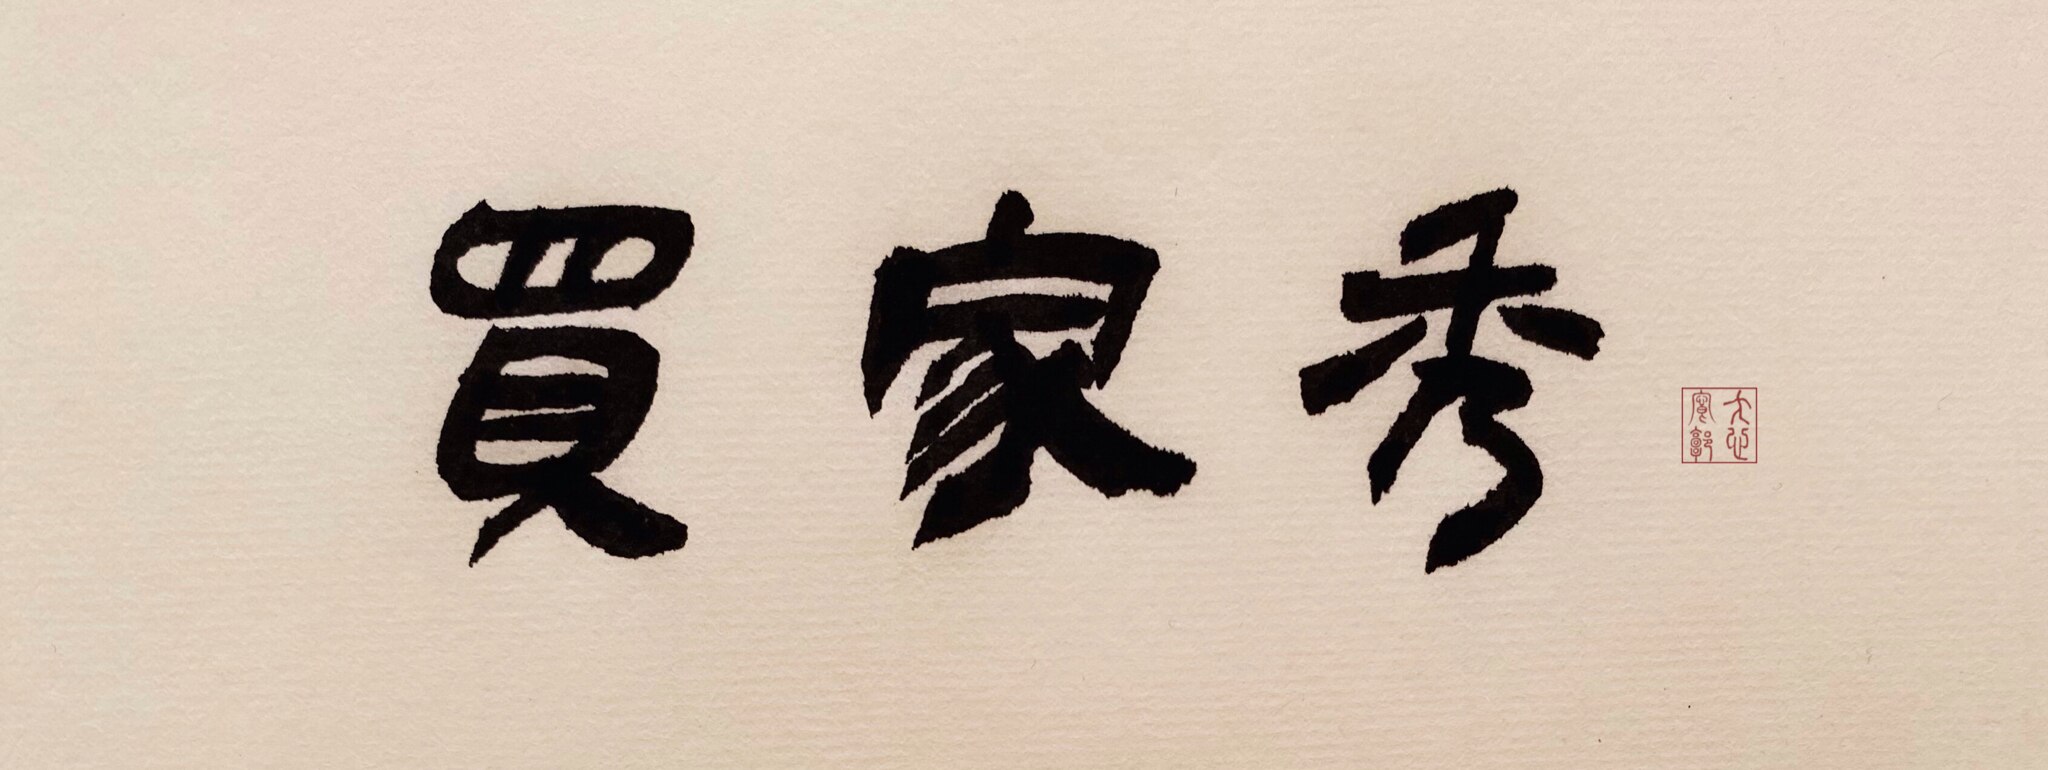 買家秀